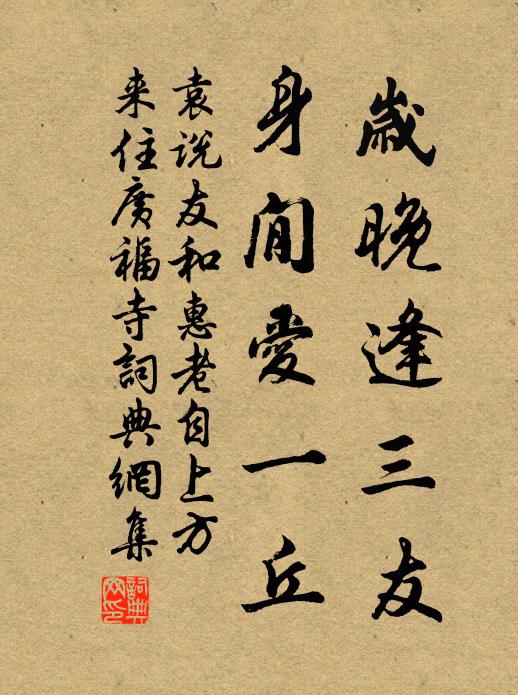 歲晚逢三友
身閒愛一丘
袁说友和惠老自上方
来住廣福寺詞典網集
詞典
网印